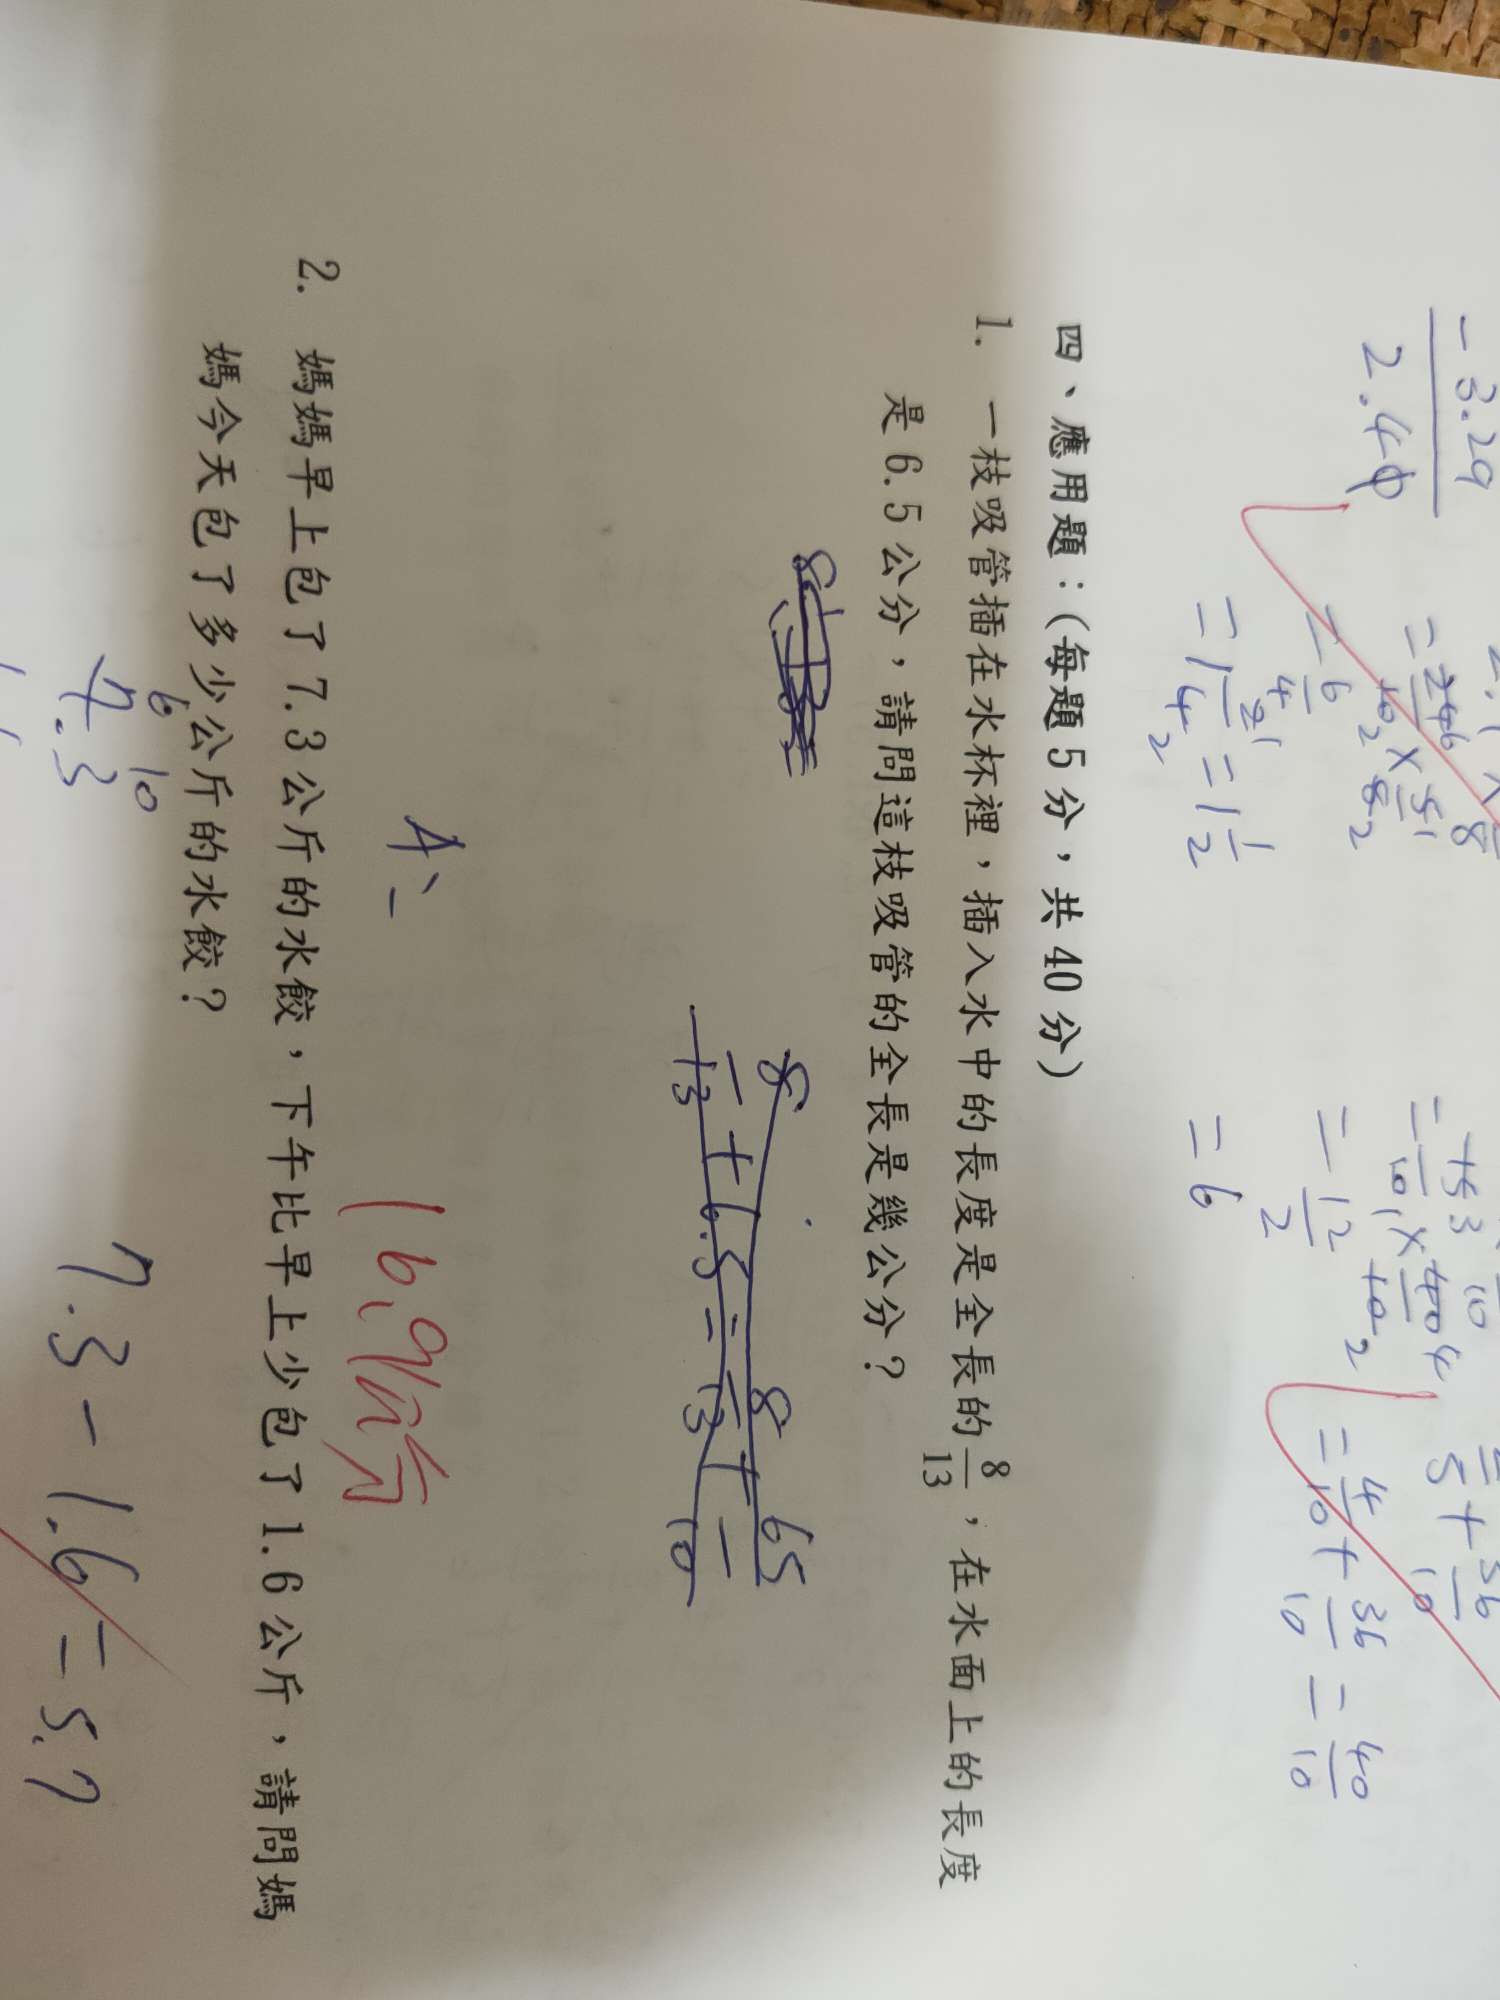 - 3.29
2.40
= 6/4
= 1 2/4 = 1 1/2
= 12/2
= 6
5 + 36/10
= 4/10 + 36/10 = 40/10
四、應用題：(每題5分，共40分)
1. 一枝吸管插在水杯裡，插入水中的長度是全長的8/13，在水面上的長度
是6.5公分，請問這枝吸管的全長是幾公分？
8/13 + 6.5 = 8/13 + 65/10
A:
16.9公分
2. 媽媽早上包了7.3公斤的水餃，下午比早上少包了1.6公斤，請問媽
媽今天包了多少公斤的水餃？
6 10
7.3
7.3 - 1.6 = 5.7